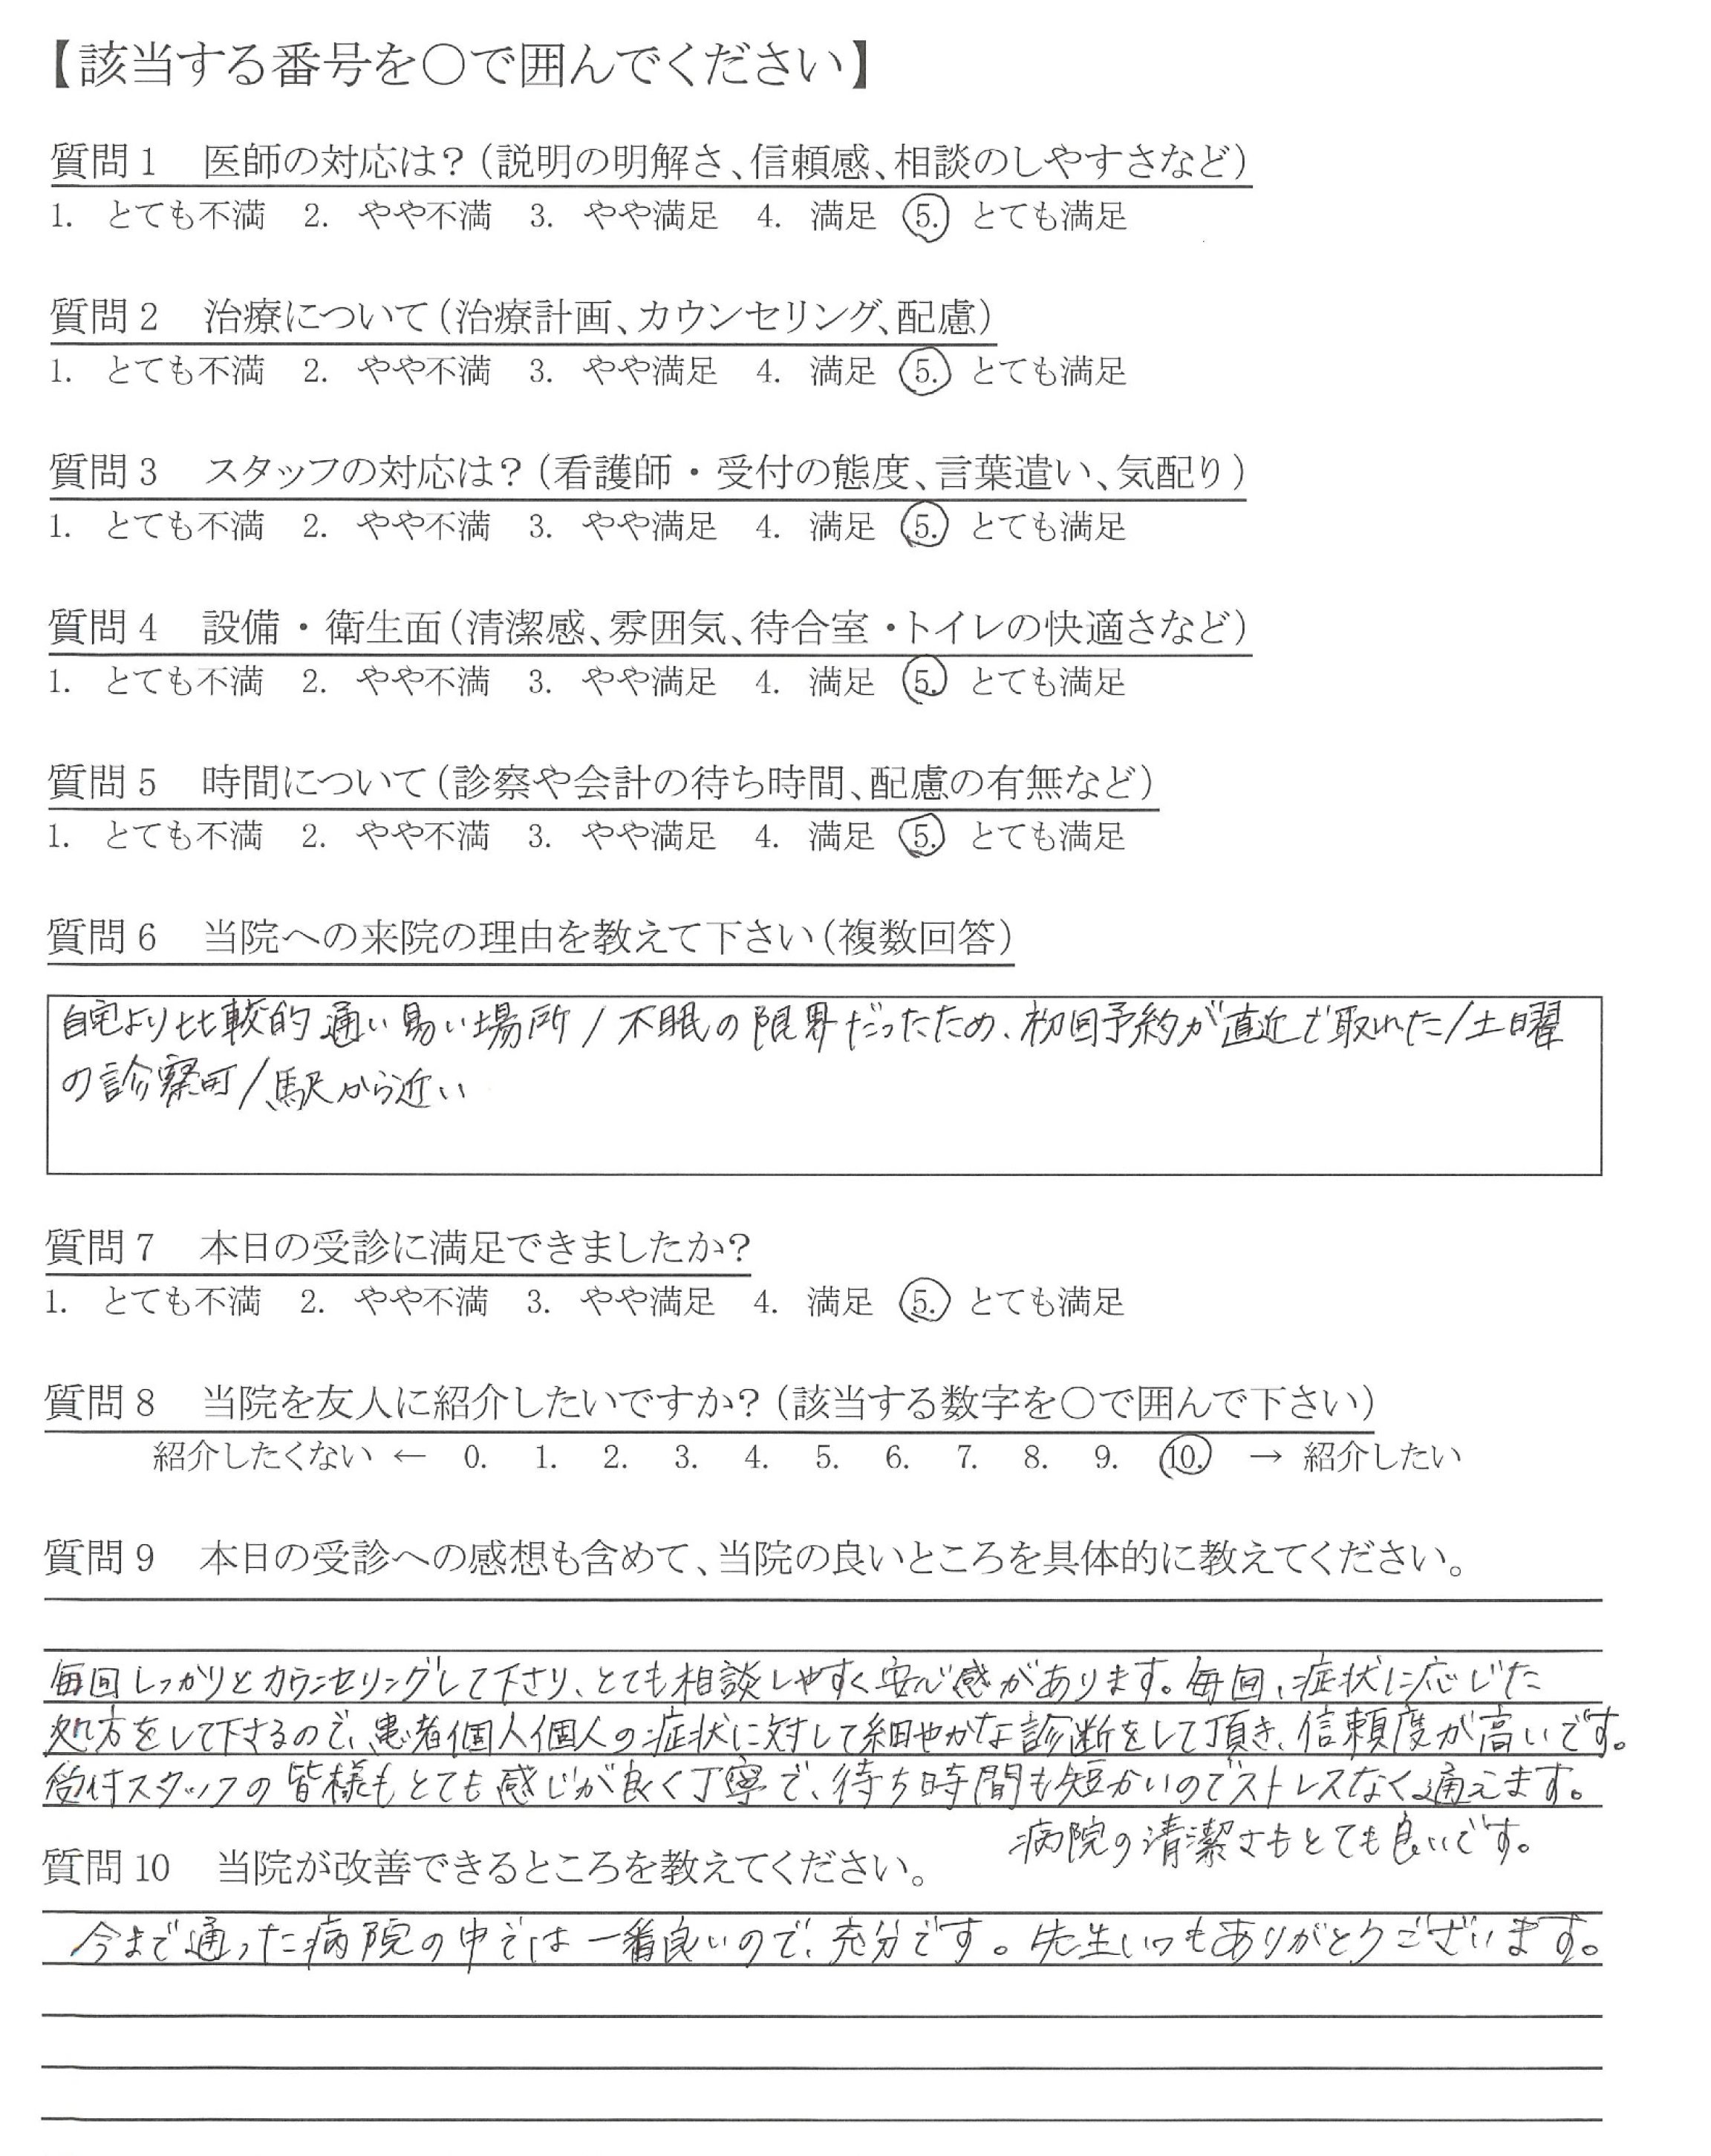 【該当する番号を○で囲んでください】
質問1 医師の対応は？（説明の明解さ、信頼感、相談のしやすさなど）
1. とても不満 2. やや不満 3. やや満足 4. 満足 5. とても満足
質問2 治療について（治療計画、カウンセリング、配慮）
1. とても不満 2. やや不満 3. やや満足 4. 満足 5. とても満足
質問3 スタッフの対応は？（看護師・受付の態度、言葉遣い、気配り）
1. とても不満 2. やや不満 3. やや満足 4. 満足 5. とても満足
質問4 設備・衛生面（清潔感、雰囲気、待合室・トイレの快適さなど）
1. とても不満 2. やや不満 3. やや満足 4. 満足 5. とても満足
質問5 時間について（診察や会計の待ち時間、配慮の有無など）
1. とても不満 2. やや不満 3. やや満足 4. 満足 5. とても満足
質問6 当院への来院の理由を教えて下さい（複数回答）
自宅より比較的通い易い場所/不眠の限界だったため、初回予約が直近で取れた/土曜
の診察可/駅から近い
質問7 本日の受診に満足できましたか？
1. とても不満 2. やや不満 3. やや満足 4. 満足 5. とても満足
質問8 当院を友人に紹介したいですか？（該当する数字を○で囲んで下さい）
紹介したくない ← 0. 1. 2. 3. 4. 5. 6. 7. 8. 9. 10. → 紹介したい
質問9 本日の受診への感想も含めて、当院の良いところを具体的に教えてください。
毎回しっかりとカウンセリングして下さり、とても相談しやすく安心感があります。毎回、症状に応じた
処方をして下さるので、患者個人個人の症状に対して細やかな診断をして頂き、信頼度が高いです。
受付スタッフの皆様もとても感じが良く丁寧で、待ち時間も短かいのでストレスなく通えます。
病院の清潔さもとても良いです。
質問10 当院が改善できるところを教えてください。
今まで通った病院の中では一番良いので、充分です。先生いつもありがとうございます。